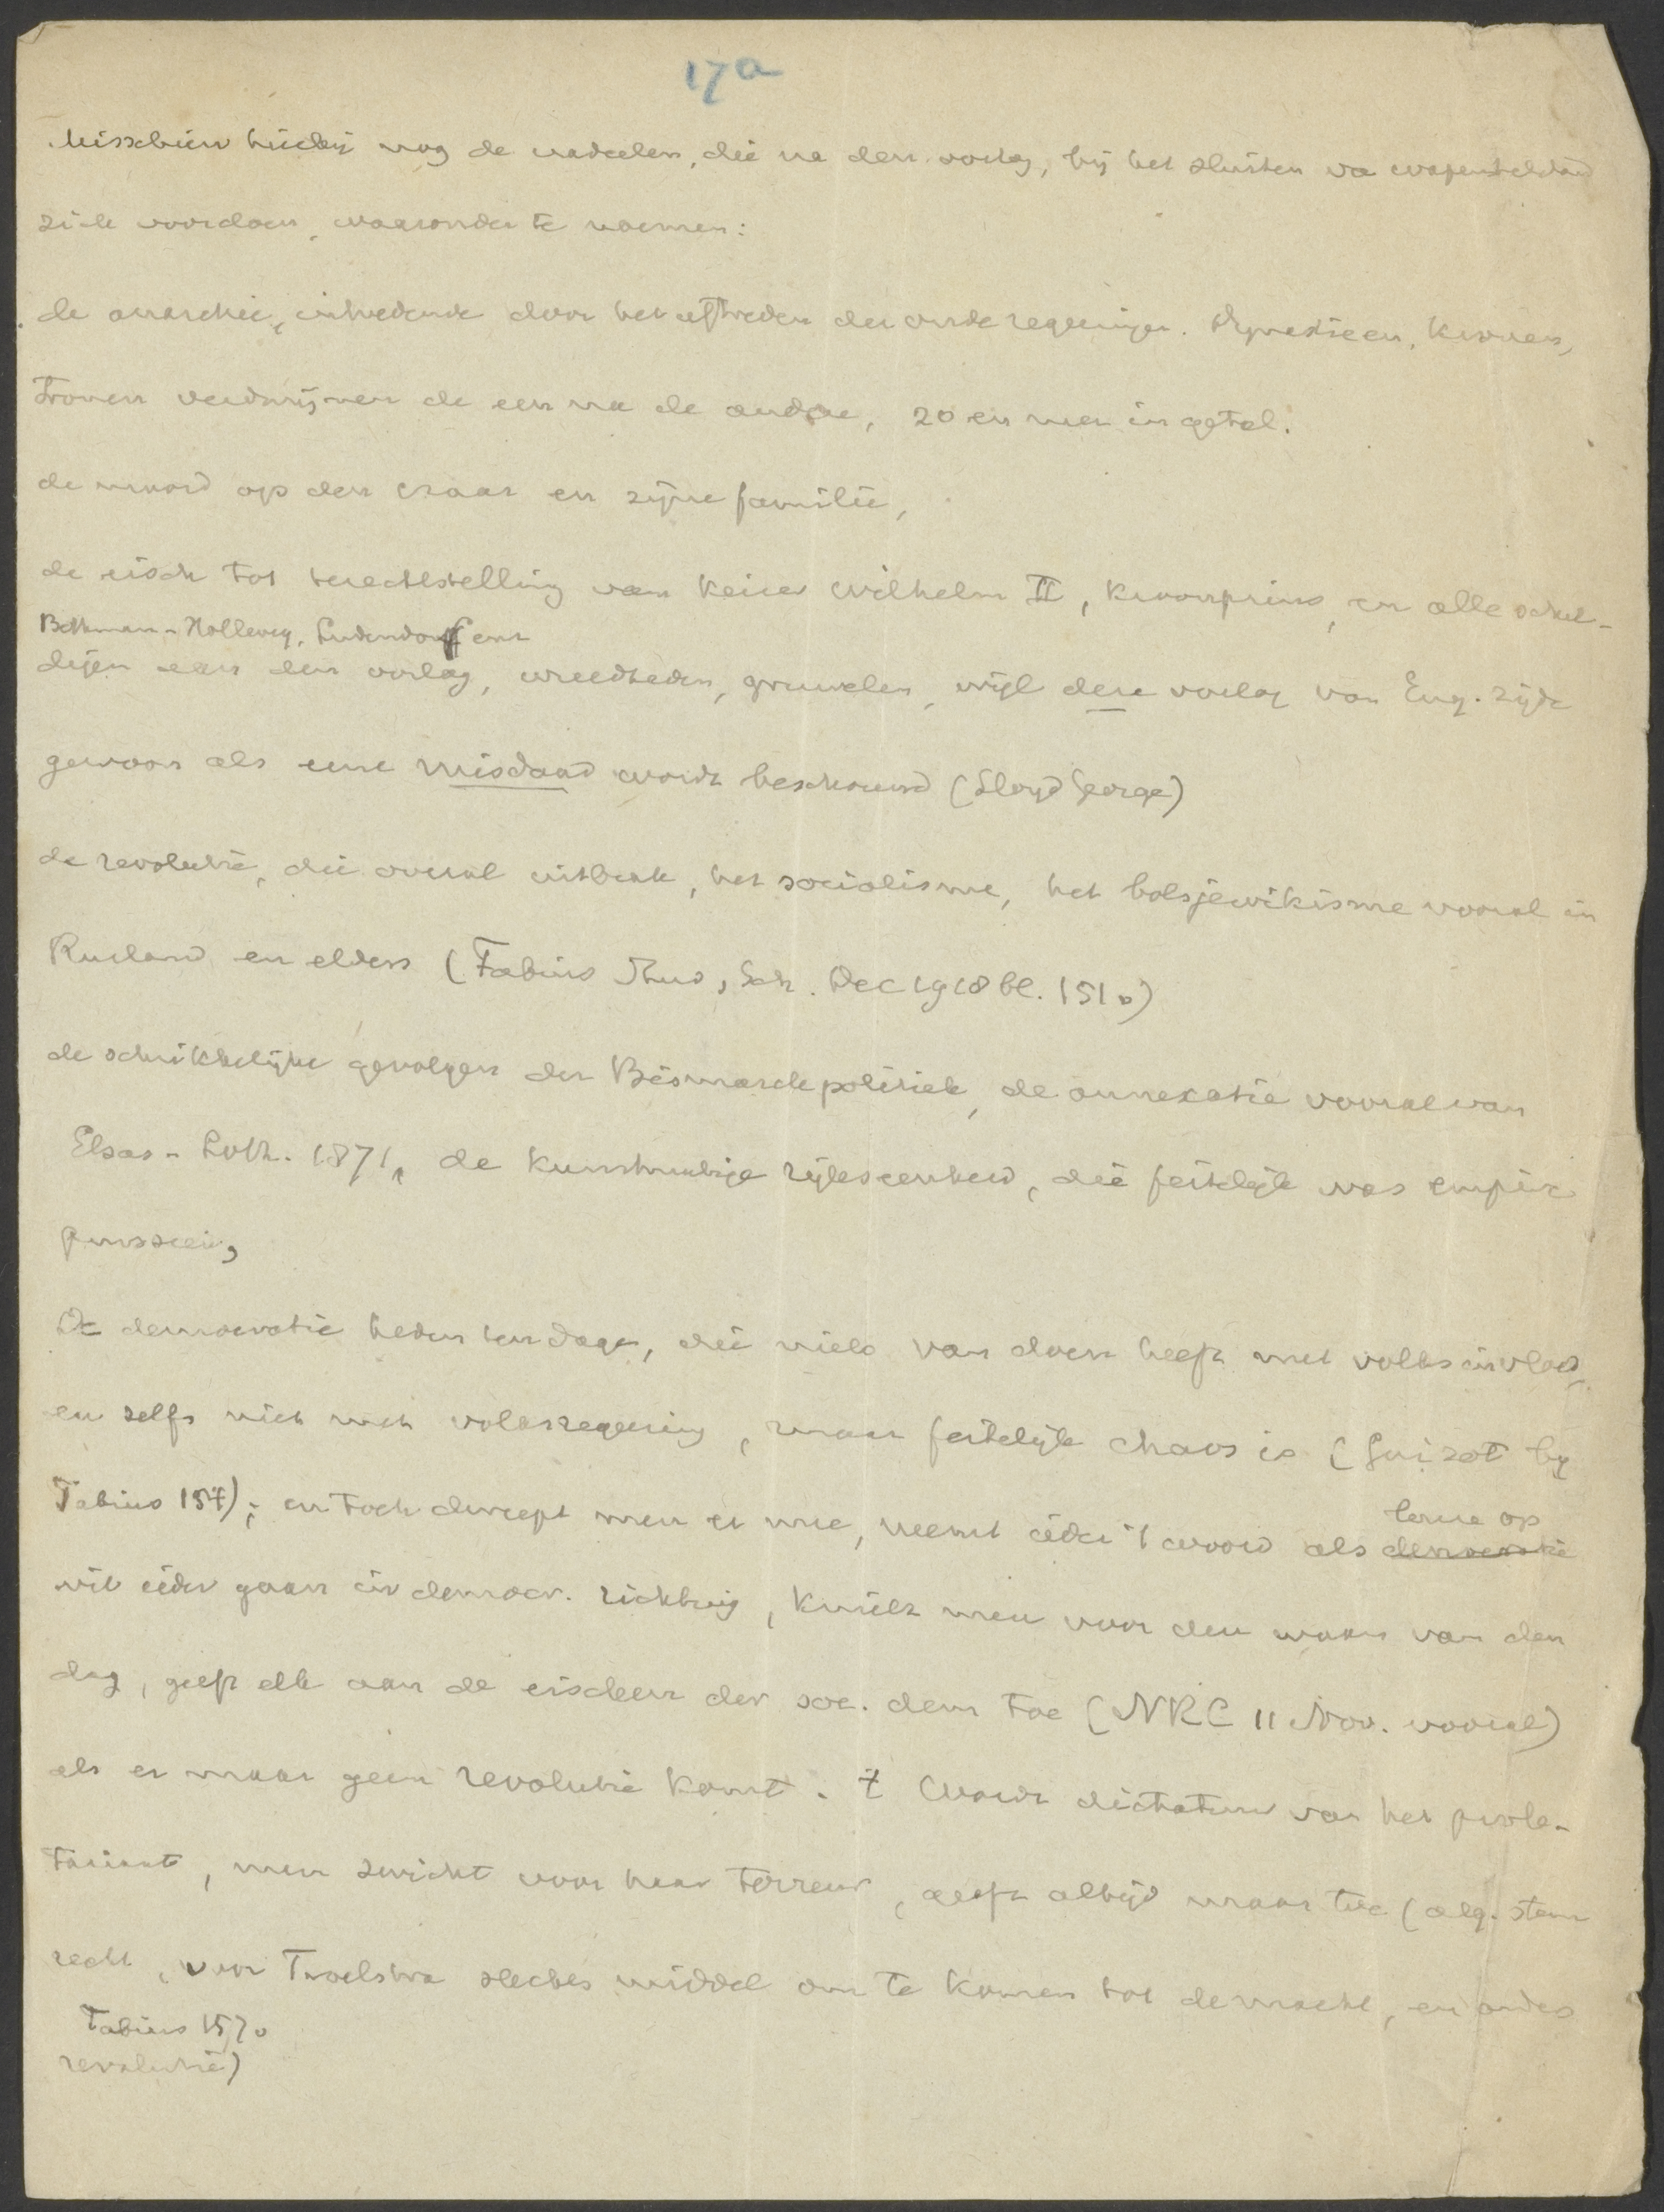 17a
Misschien hierbij nog de nadeelen, die na den oorlog, bij het sluiten va wapenstilstand
zich voordoen, waaronder te noemen:
de anarchie, intredende door het aftreden der oude regeeringen. Dynastieen, kronen,
tronen verdwijnen de een na de andere, 20 en meer in getal.
de moord op den czaar en zijne familie,
de eisch tot terechtstelling van keizer Wilhelm II, kroonprins, en alle schul-
Bethman-Hollweg, Ludendorff enz
digen aan den oorlog, wreedheden, gruwelen, wijl deze oorlog van Eng. zijde
gewoon als eene misdaad wordt beschouwd (Lloyd George)
de revolutie, die overal uitbrak, het socialisme, het bolsjewikisme vooral in
Rusland en elders (Fabius Stud, Sch. Dec 1918 bl. 151v)
de schrikkelijke gevolgen der Bismarckpolitiek, de annexatie vooral van
Elsas-Loth. 1871, de kunstmatige rijkseenheid, die feitelijk was empire
prussien,
De democratie heden ten dage, die niets van doen heeft met volksinvloed,
en zelfs niet met volksregeering, maar feitelijk chaos is (Guizot bij
Fabius 154); en toch dweept men er mee, neemt ieder 't woord als democratie
leuze op
wil ieder gaan in democr. richting, knielt men voor den waan van den
dag, geeft elk aan de eischen der soc. dem toe (NRC 11 Nov. vooral)
als er maar geen revolutie komt. t Wordt dictatuur van het prole-
tariaat, men zwicht voor haar terreur, geeft altijd maar toe (alg. stem
recht, voor Troelstra slechts middel om te komen tot de macht, en anders
Fabius 157v
revolutie)